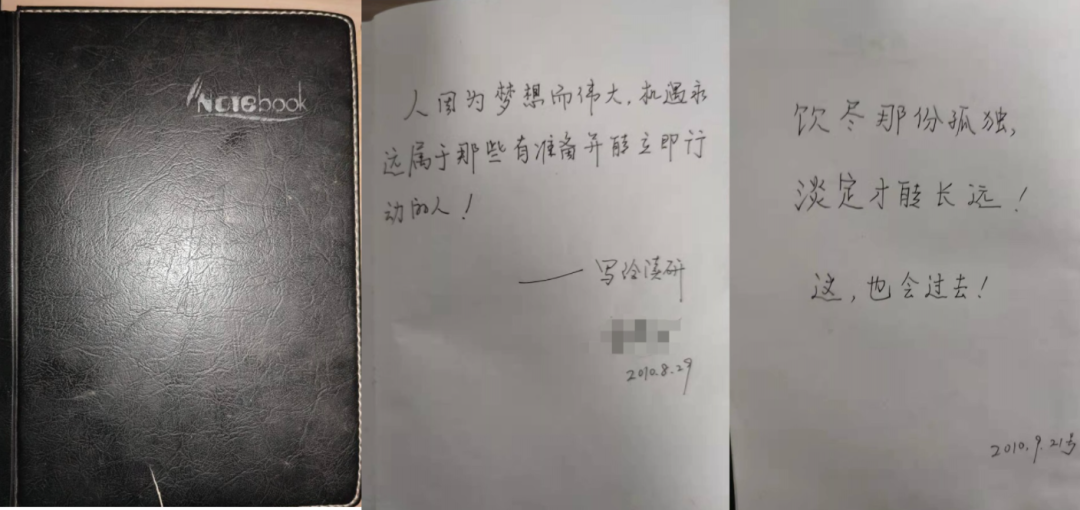 Notebook
人因为梦想而伟大,机遇永
远属于那些有准备并能立即行
动的人!
——写给读研
2010.8.29
饮尽那份孤独,
淡定才能长远!
这,也会过去!
2010.9.21号